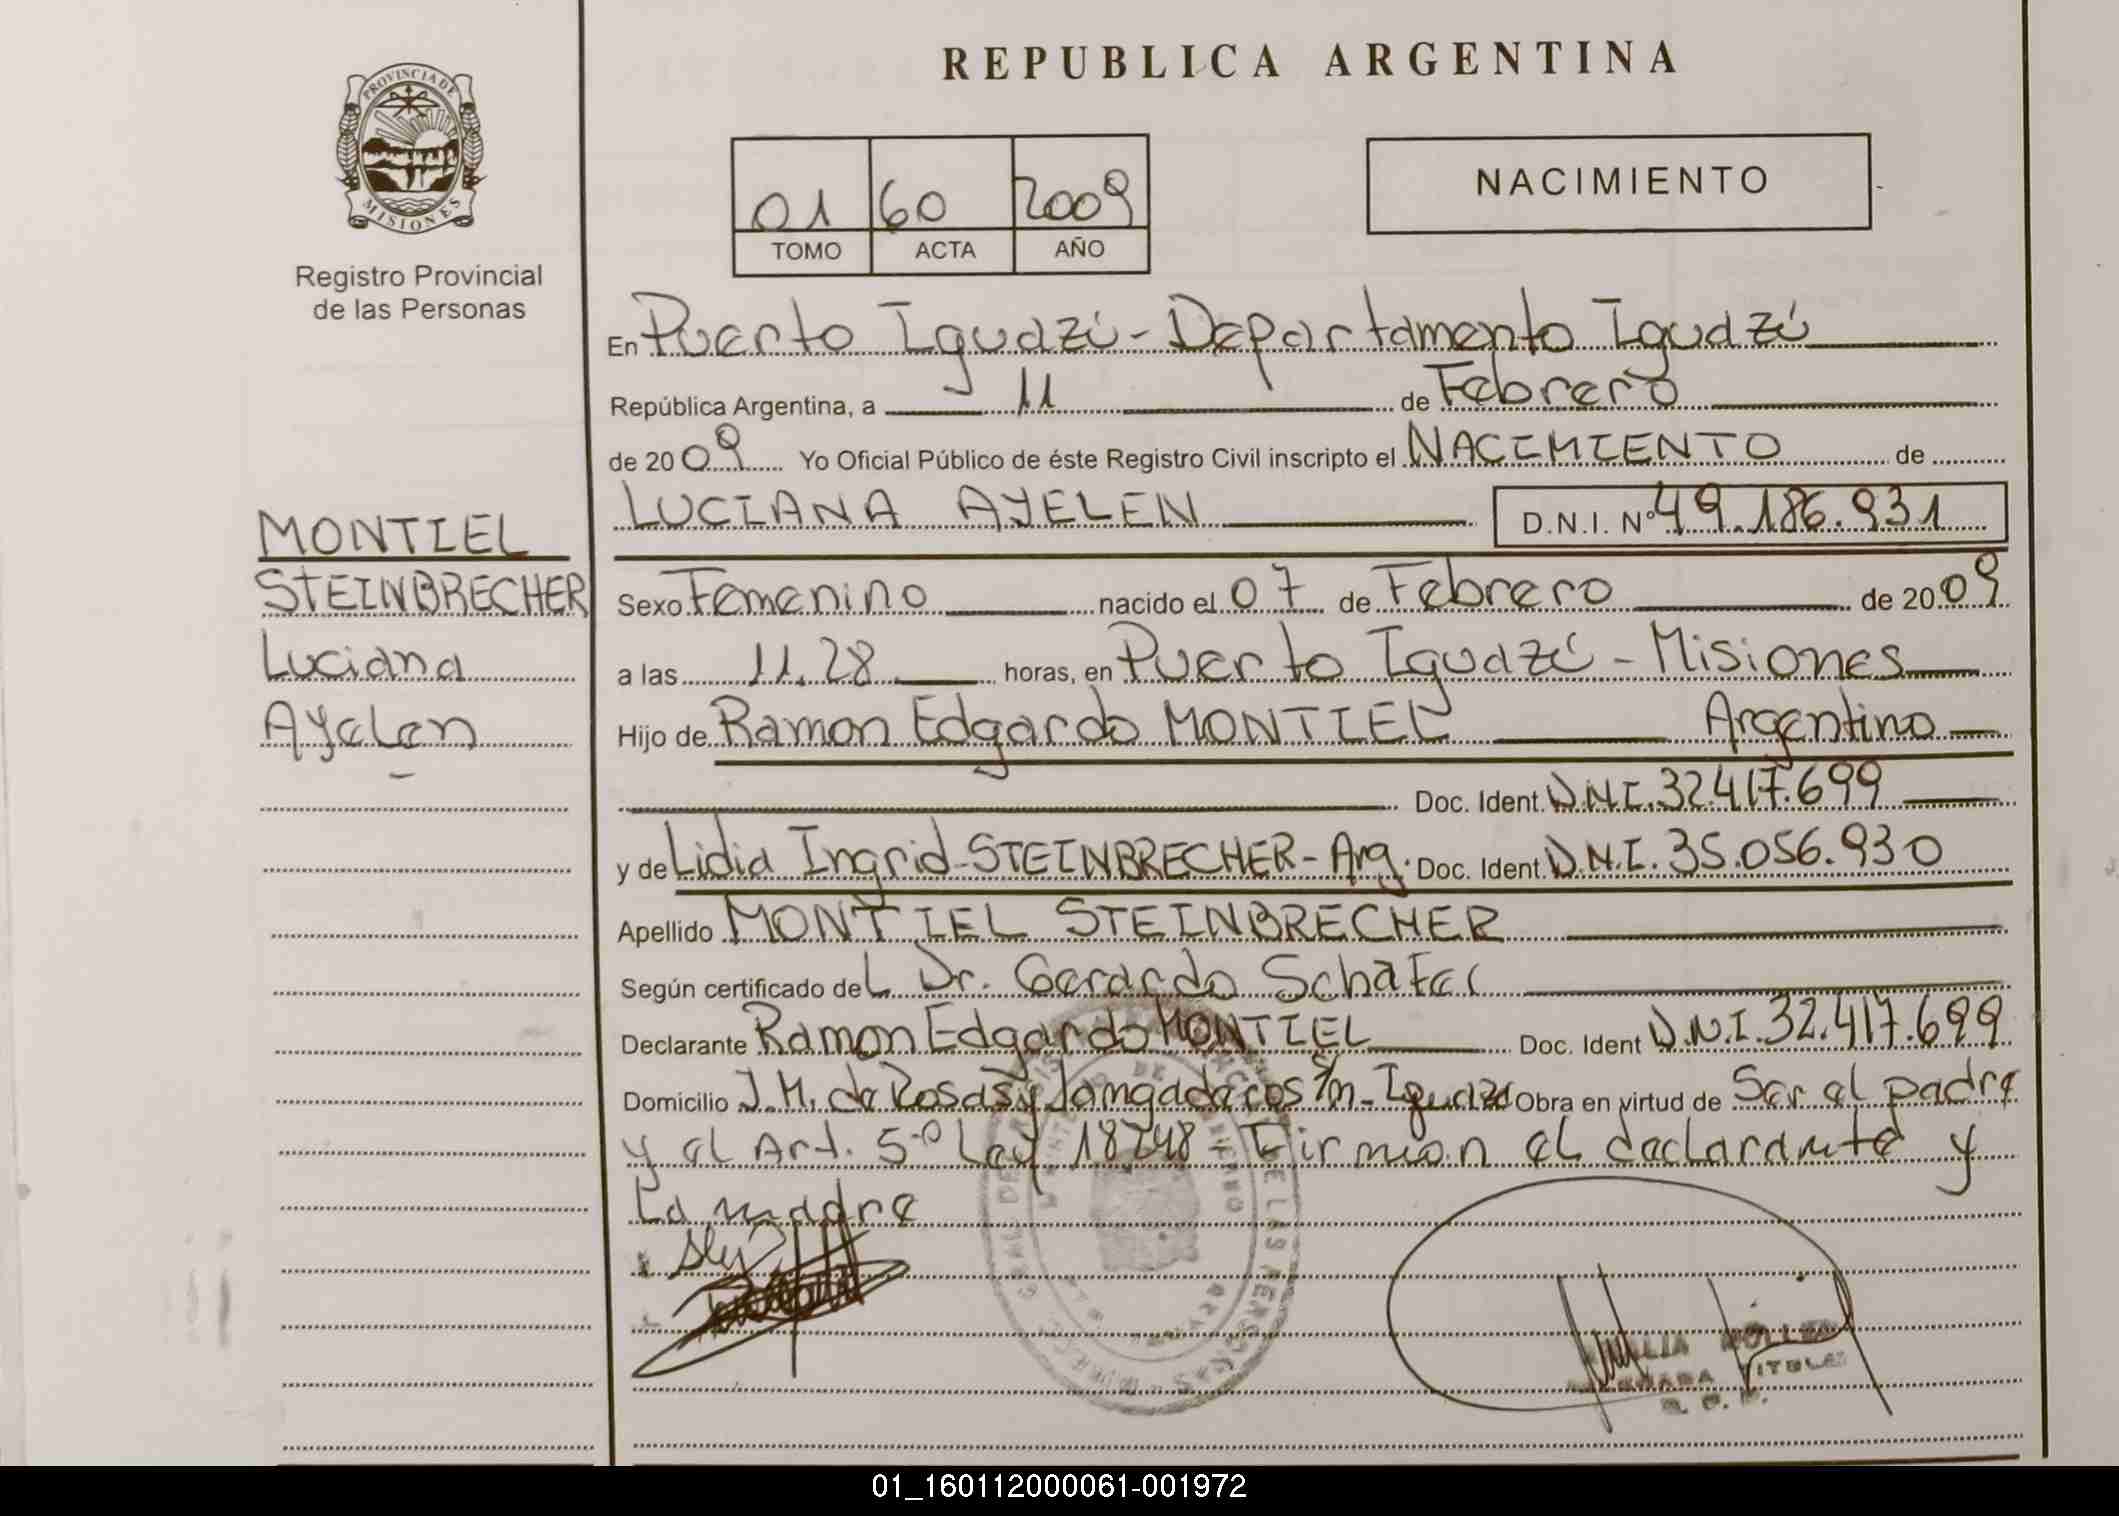 REPUBLICA ARGENTINA
PROVINCIA DE
MISIONES
Registro Provincial
de las Personas
01 60 2009
TOMO ACTA AÑO
NACIMIENTO
En Puerto Iguazú - Departamento Iguazú
República Argentina, a 11 de Febrero
de 2009 Yo Oficial Público de éste Registro Civil inscripto el NACIMIENTO de
LUCIANA AYELEN D.N.I. Nº 49.186.931
MONTIEL
STEINBRECHER
Luciana
Ayelen
Sexo Femenino nacido el 07 de Febrero de 2009
a las 11.28 horas, en Puerto Iguazú - Misiones
Hijo de Ramon Edgardo MONTIEL Argentino
Doc. Ident. D.N.I. 32.417.699
y de Lidia Ingrid - STEINBRECHER - Arg. Doc. Ident. D.N.I. 35.056.930
Apellido MONTIEL STEINBRECHER
Según certificado del Dr. Gerardo Schafer
Declarante Ramon Edgardo MONTIEL Doc. Ident D.N.I. 32.417.699
Domicilio J.M. de Rosas y Jangaderos s/n - Iguazú Obra en virtud de Ser el padre
y el Art. 5º Ley 18248 - Firman el declarante y
La madre
TITULAR
01_160112000061-001972